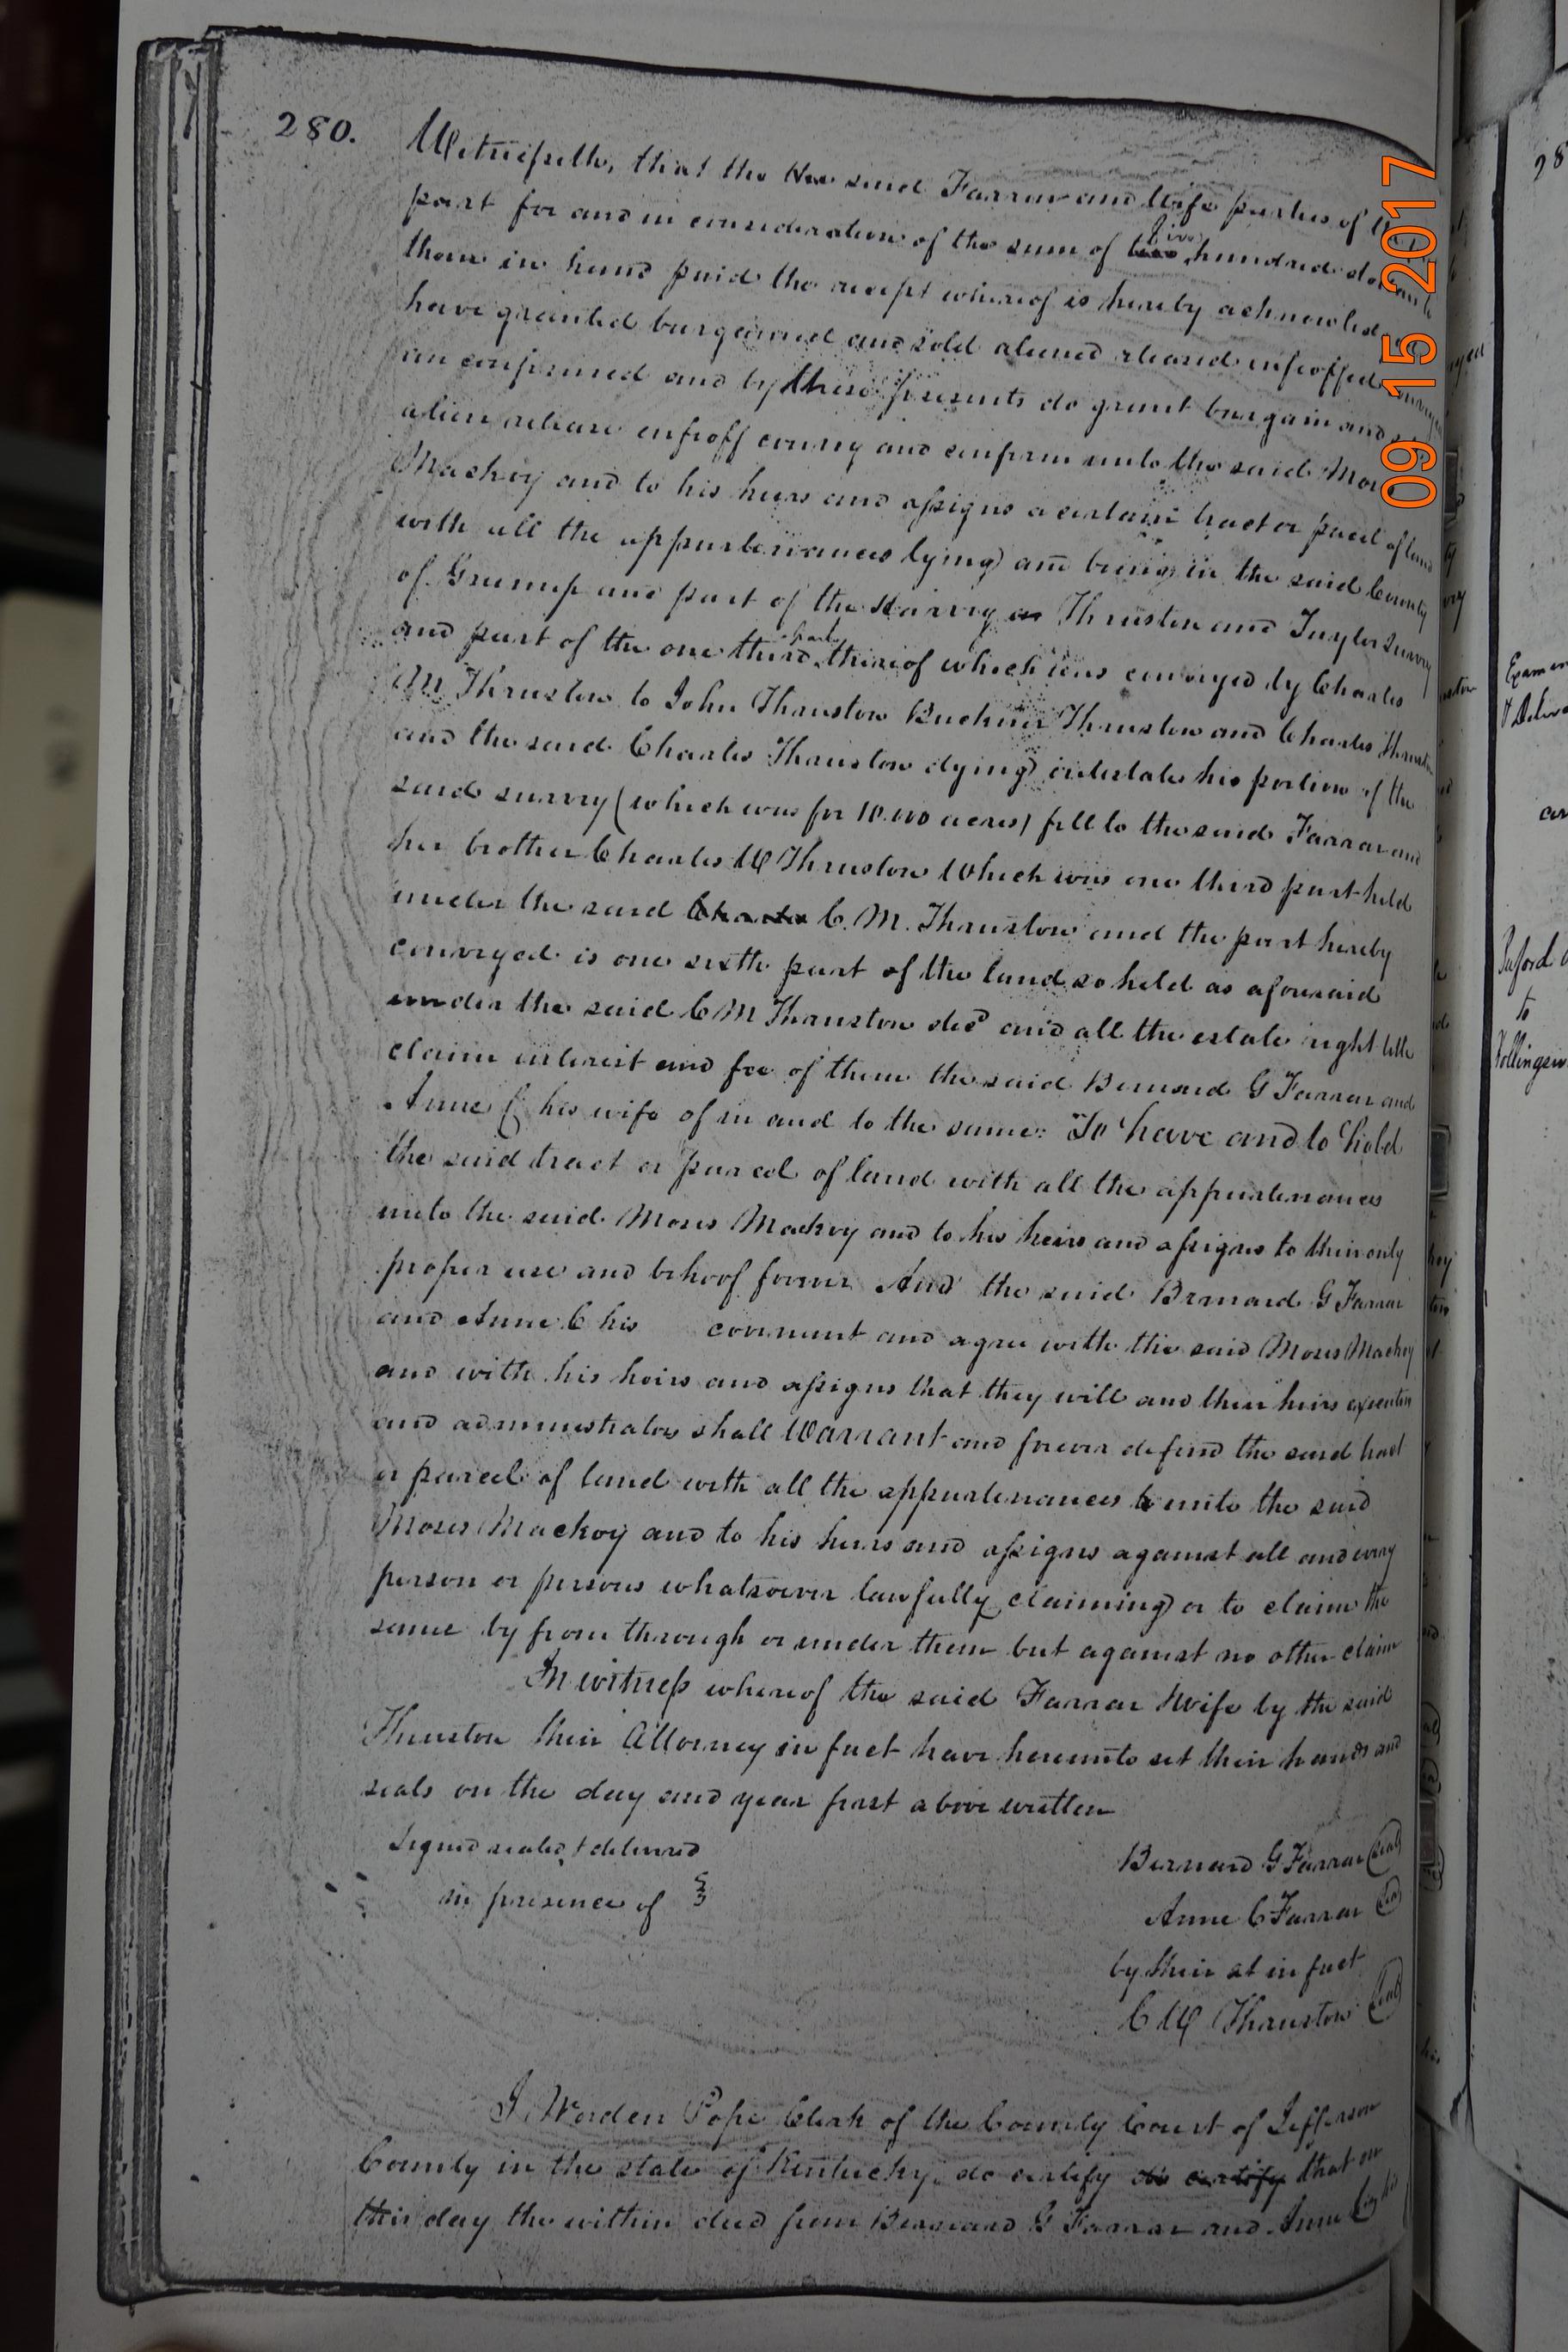 280.
Witnesseth, that the the said Farrar and Wife parties of the
part for and in consideration of the sum of two five hundred dollars
them in hand paid the receipt whereof is hereby acknowled
have granted bargained and sold aliened released enfeoffed
an confirmed and by these presents do grant bargain and
alien release enfeoff convey and confirm unto the said Mos
Mackoy and to his heirs and assigns a certain tract or parcel of land
with all the appurtenances lying and being in the said County
of Greenup and part of the survey or Thruston and Taylor survey
and part of the one third part thereof which was conveyed by Charles
M Thruston to John Thruston Buckner Thruston and Charles Thruston
and the said Charles Thruston dying intestate his portion of the
said survey (which was for 10.000 acres) fell to the said Farrar and
her brother Charles W Thruston Which was one third part held
under the said Charles C. M. Thruston and the part hereby
conveyed is one sixth part of the land so held as aforesaid
under the said C M Thruston decd and all the estate right title
claim interest and fee of them the said Bernard G Farrar and
Anne C his wife of in and to the same: To have and to hold
the said tract or parcel of land with all the appurtenances
unto the said Moses Mackoy and to his heirs and assigns to their only
proper use and behoof forever And the said Bernard G Farrar
and Anne C his covenant and agree with the said Moses Mackoy
and with his heirs and assigns that they will and their heirs executors
and administrators shall Warrant and forever defend the said tract
or parcel of land with all the appurtenances to unto the said
Moses Mackoy and to his heirs and assigns against all and every
person or persons whatsoever lawfully claiming or to claim the
same by from through or under them but against no other claim
In witness whereof the said Farrar & Wife by the said
Thruston their Attorney in fact have hereunto set their hands and
seals on the day and year first above written
Signed sealed & delivered
in presence of
Bernard G Farrar (seal)
Anne C Farrar (seal)
by their at in fact
C W Thruston (seal)
I Worden Pope Clerk of the County Court of Jefferson
County in the state of Kentucky do certify do certify that on
this day the within deed from Bernard G Farrar and Anne C
09 15 2017
28
Examin
& Delive
to
Hollingsw